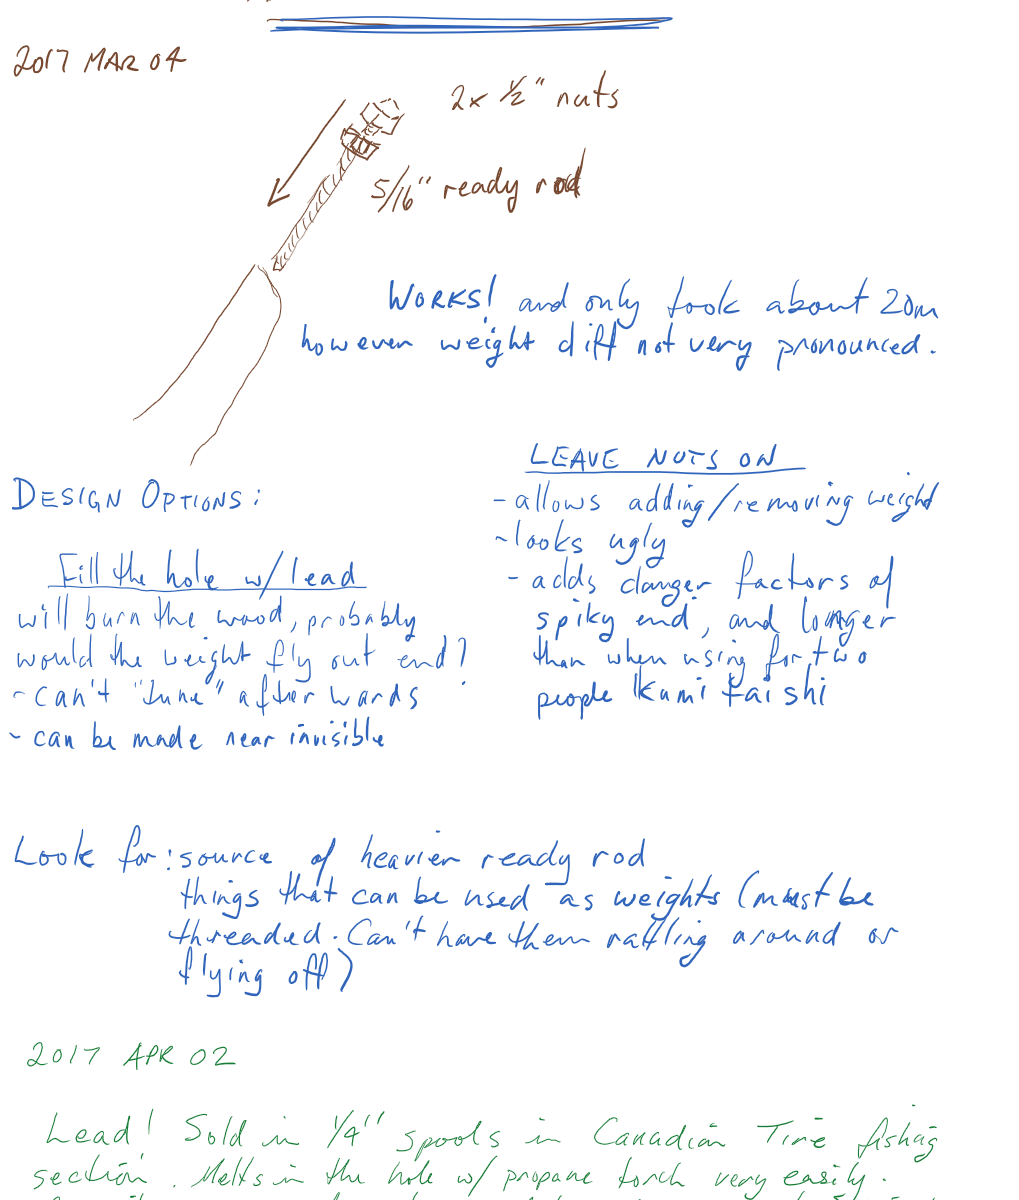 2017 MAR 04
2x 1/2" nuts
5/16" ready rod
WORKS! and only took about 20m
however weight diff not very pronounced.
DESIGN OPTIONS:
Fill the hole w/ lead
will burn the wood, probably
would the weight fly out end?
- can't "tune" afterwards
- can be made near invisible
LEAVE NUTS ON
- allows adding/removing weight
- looks ugly
- adds danger factors of
spiky end, and longer
than when using for two
people Kumitaishi
Look for: source of heavier ready rod
things that can be used as weights (must be
threaded. Can't have them rattling around or
flying off)
2017 APR 02
Lead! Sold in 1/4" spools in Canadian Tire fishing
section. Melts in the hole w/ propane torch very easily.